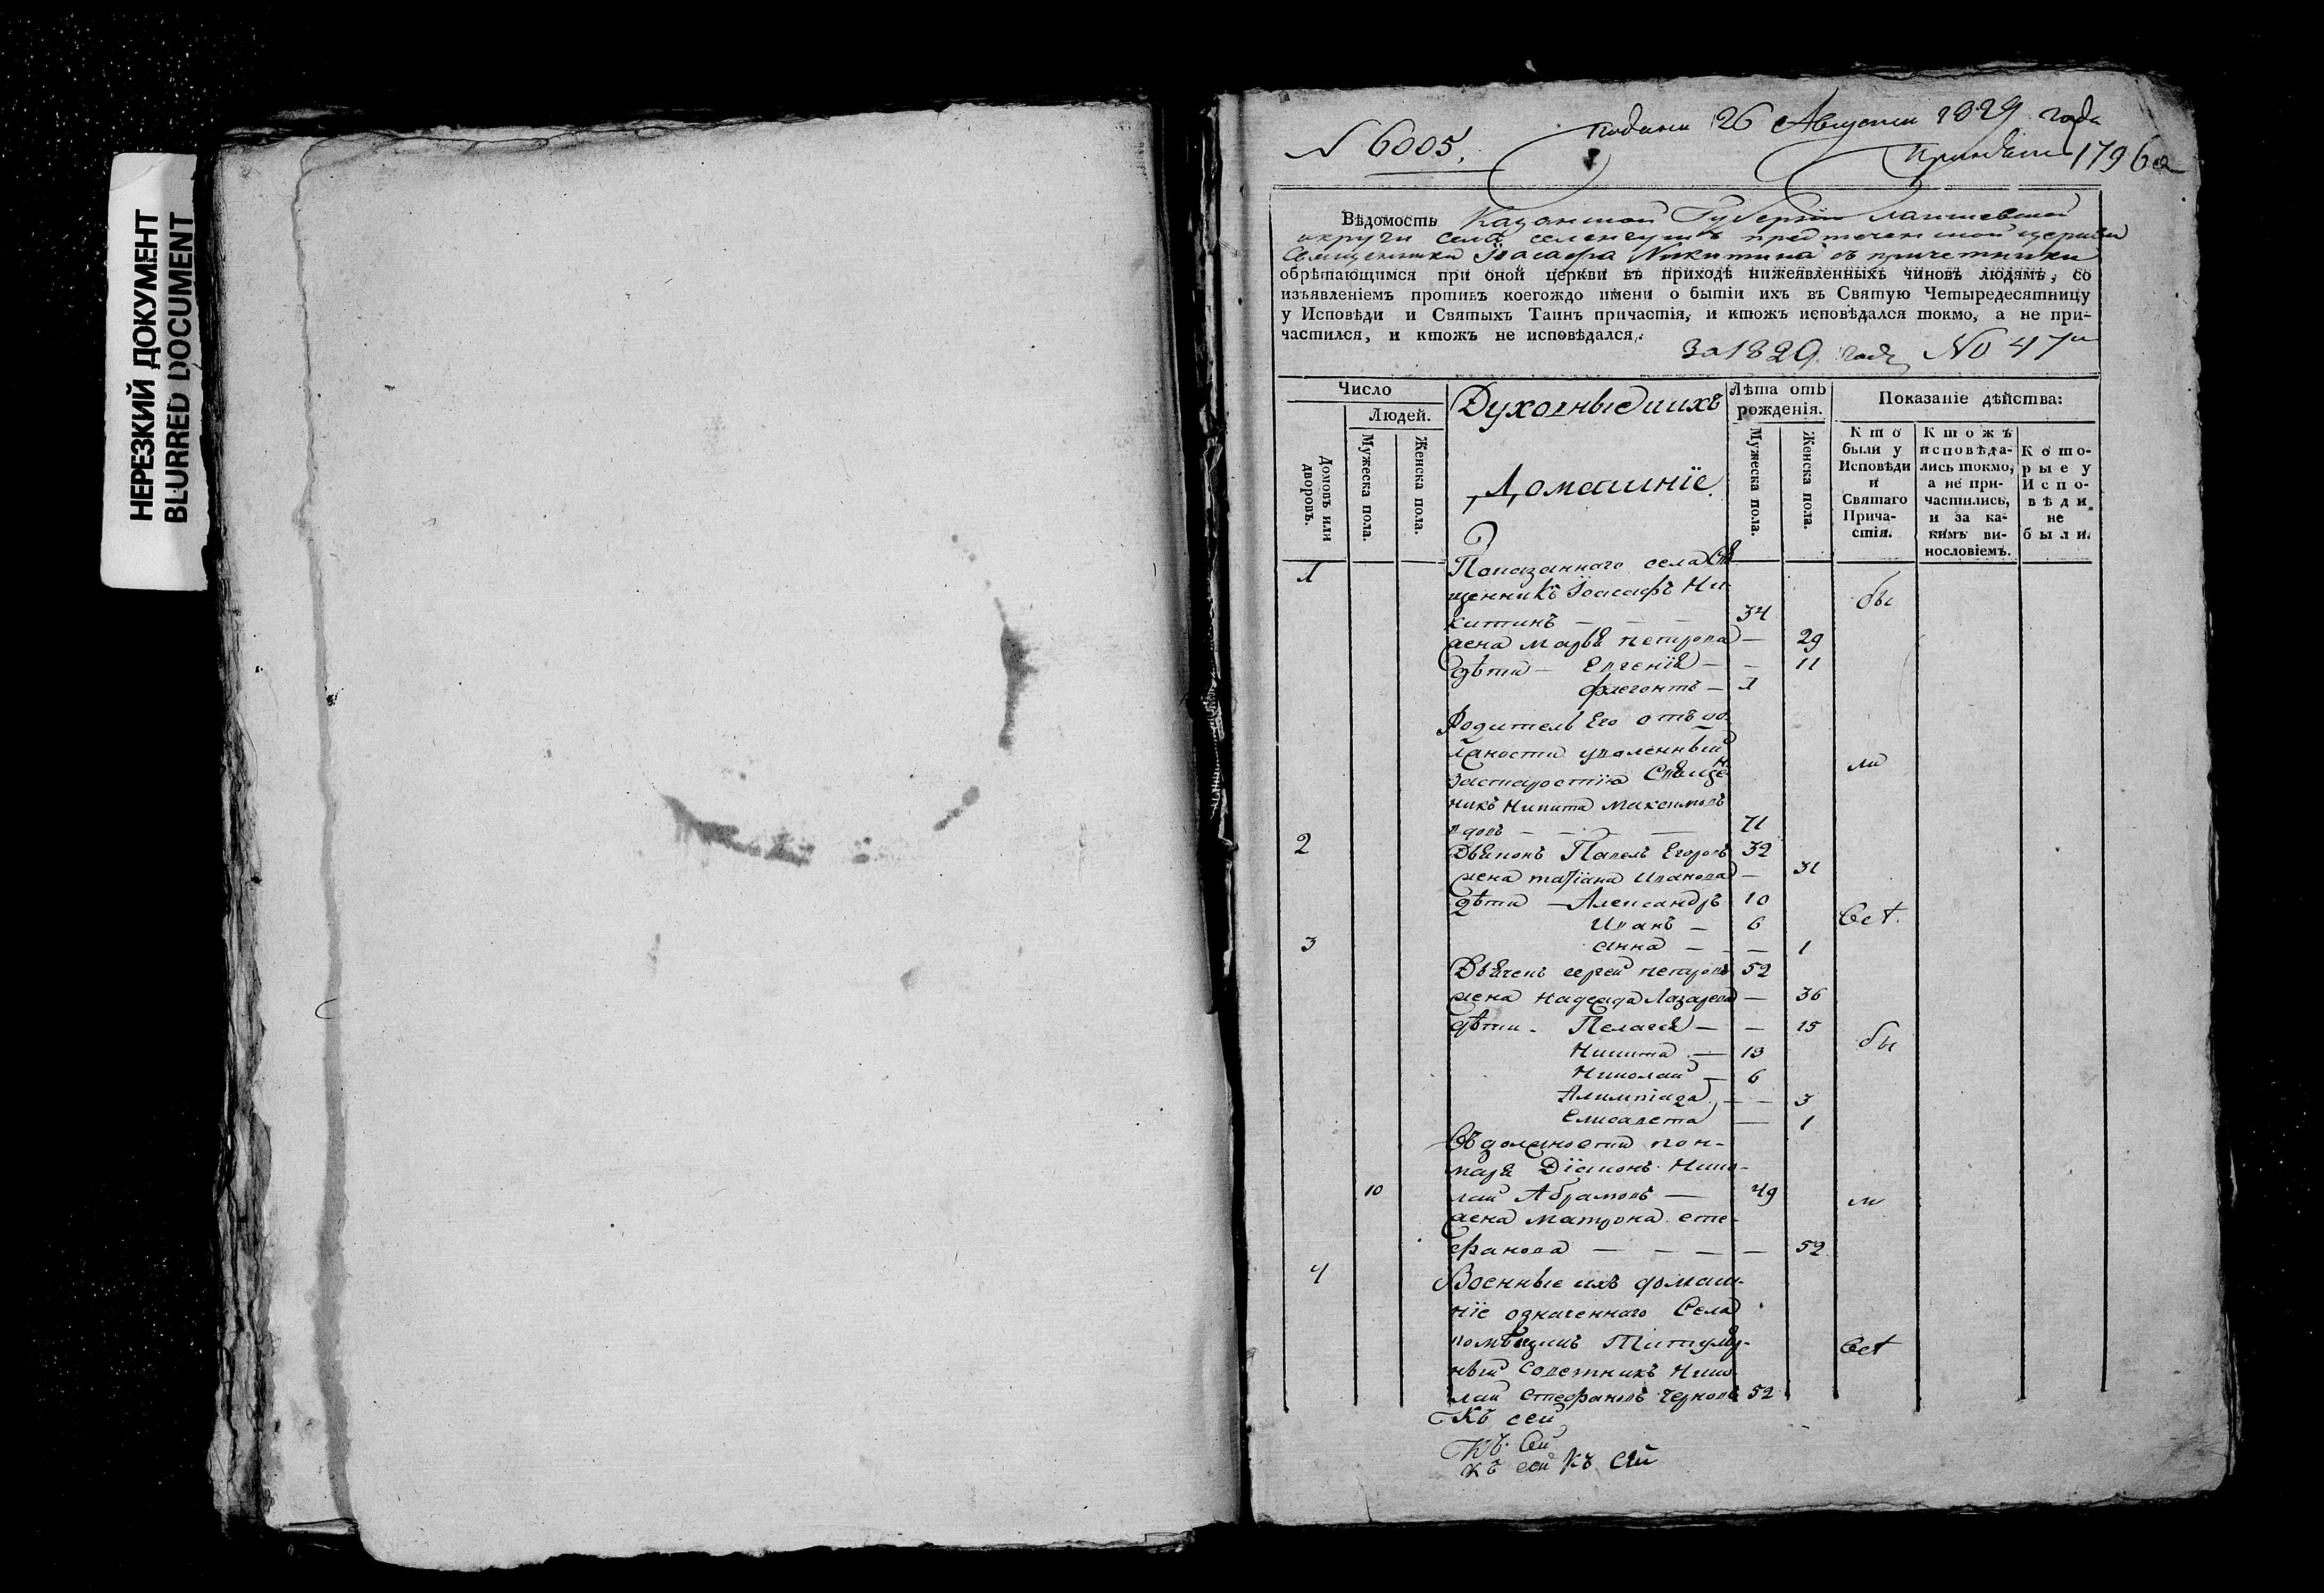 НЕРЕЗКИЙ ДОКУМЕНТ
BLURRED DOCUMENT
N 6005.
подана 26 Августа 1829 года
179
Вѣдомость Казанской Губернїи лаишевской
округи села селенгушъ предтеченской церкви
Священника Iоасафа Никитина съ причетники
обрѣтающимся при оной церкви въ приходѣ нижеявленныхъ чиновъ людямъ, со
изъявленіемъ противъ коегождо имени о бытіи ихъ въ Святую Четыредесятницу
у Исповѣди и Святыхъ Таинъ причастія, и ктожъ исповѣдался токмо, а не при-
частился, и ктожъ не исповѣдался.
За 1829 годъ No 47
Число
Людей.
Домовъ или дворовъ.
Мужеска пола.
Женска пола.
Духовные и ихъ
Домашнїе.
Лѣта отъ
рожденія.
Мужеска пола.
Женска пола.
Показаніе дѣйства:
Кто были у Исповѣди и Святаго Прича-стія.
Ктожъ исповѣда-лись токмо, а не при-частились, и за ка-кимъ ви-нословіемъ.
Кото-рые у Испо-вѣди не были.
1 Показаннаго села Свя
щенникъ Iоасафъ Ни-
китинъ — 34 бы
жена марья петрова — 29
дѣти — Евгенїя — 11
флегонтъ — 1
Родитель Его отъ до
лжности уволенный
застаростїю Священ
никъ Никита Максимовъ ли
вдовъ — 71
2 Дьяконъ Павелъ Егоровъ 32
жена татїана Иванова — 31
дѣти — Александръ 10
Иванъ — 6 Всѣ.
3 анна — 1
Дьячекъ сергей петровъ 52
жена надежда Лазарева — 36
дѣти - Пелагея — 15
Никита — 13 бы
Николай — 6
Алимпїада — 3
Елисавета — 1
Въ должности пон-
маря Дїаконъ Нико-
10 лай Абрамовъ — 49 ли
жена матрона сте-
фанова — 52
4 Военные ихъ домаш-
нїе означеннаго Села
помѣщикъ Титуляр- Всѣ
ный советникъ Нико
лай стефановъ черновъ 52
Къ сей
Къ сей
къ сей къ сей